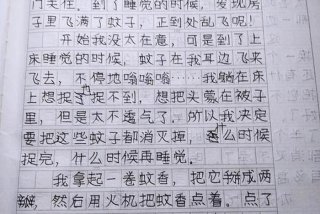 门关住。到了睡觉的时候，发现房
子里飞满了蚊子，正到处乱飞呢！
开始我没太在意，可是到了上
床睡觉的时候，蚊子在我耳边飞来
飞去，不停地嗡嗡嗡……我躺在床
上想捉也捉不到，想把头蒙在被子
里，但是太不透气了，所以我决定
要把这些蚊子都消灭掉，什么时候
捉完，什么时候再睡觉。
我拿起一卷蚊香，把它掰成两
瓣，然后用火机把蚊香点着。点了